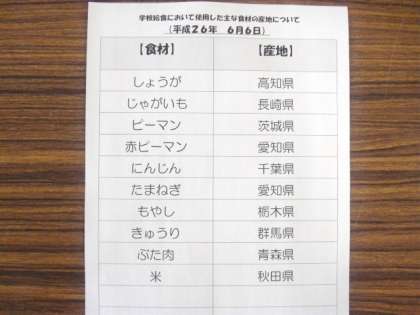 学校給食において使用した主な食材の産地について
(平成26年 6月6日)
【食材】 【産地】
しょうが 高知県
じゃがいも 長崎県
ピーマン 茨城県
赤ピーマン 愛知県
にんじん 千葉県
たまねぎ 愛知県
もやし 栃木県
きゅうり 群馬県
ぶた肉 青森県
米 秋田県